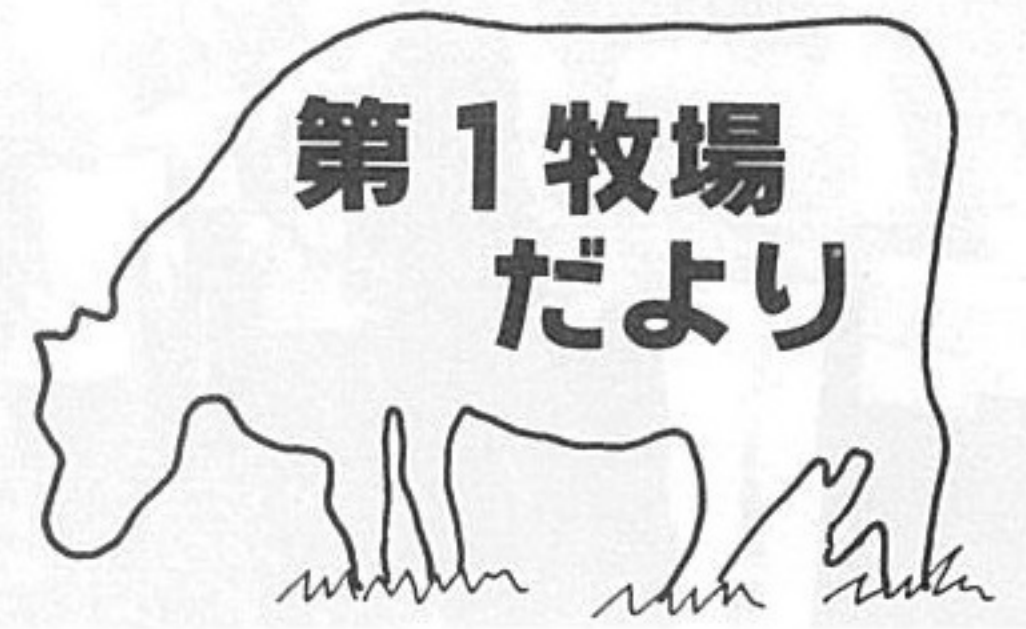 第1牧場
だより